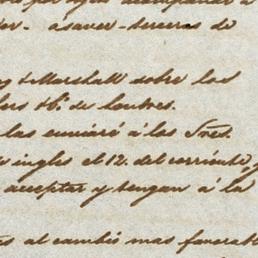 por acompañar á
der. asaver terceros de
y Marshall sobre los
de Londres.
las enviaré á las Sres.
ingles el 12. del corriente, y
aceptar y tengan á la
al cambio mas favorable